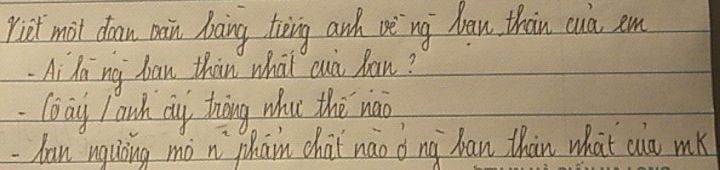 Viết một đoạn văn bằng tiếng anh về ng bạn thân của em
- Ai là ng bạn thân nhất của bạn ?
- Cô ấy / anh ấy trông như thế nào
- bạn ngưỡng mộ n~ phẩm chất nào ở ng bạn thân nhất của mk